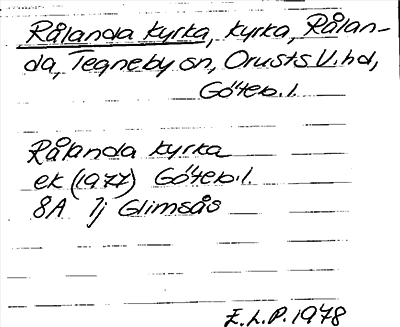 Rålanda kyrka, kyrka, Rålan-
da, Tegneby sn, Orusts V. hd,
Göteb. l.
Rålanda kyrka
ek (1977) Göteb. l.
8A 7j Glimsås
E.L.P. 1978